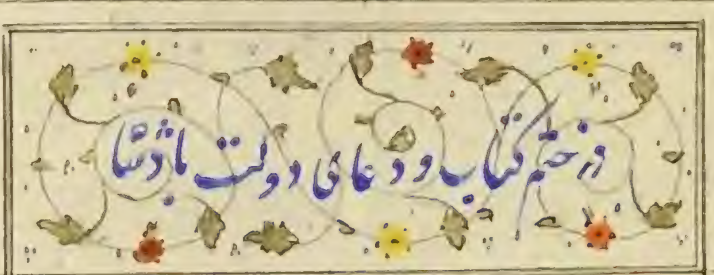 در ختم کتاب و دعای دولت پادشا